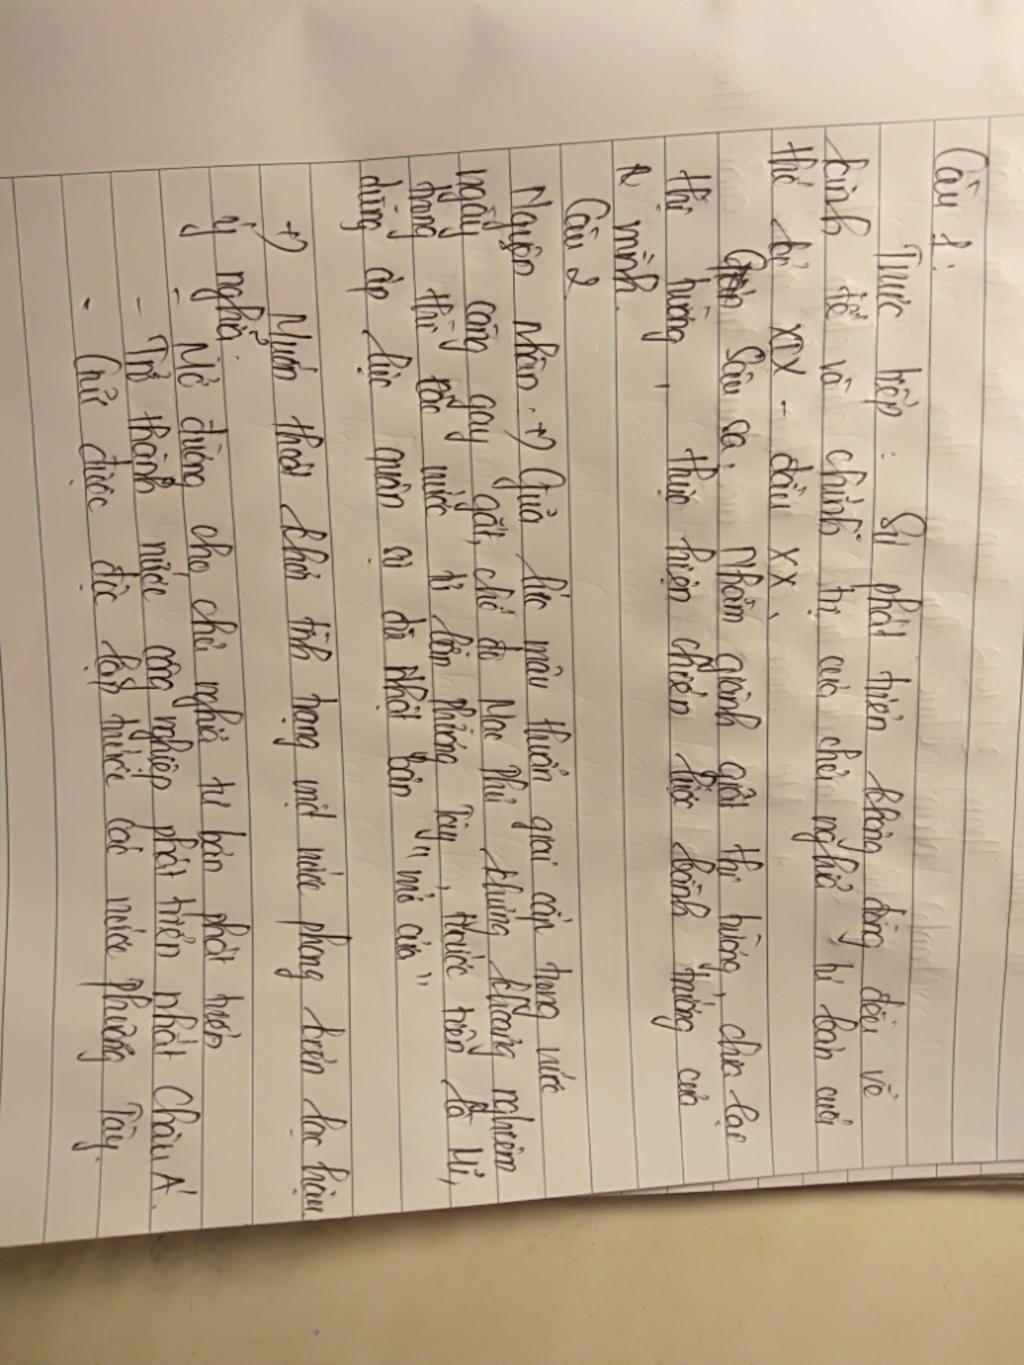 Câu 1:
Trực tiếp: Sự phát triển không đồng đều về
kinh tế và chính trị của chủ nghĩa tư bản cuối
thế kỉ XIX - đầu XX.
Sâu sa: Nhằm giành giật thị trường, chia lại
thị trường, thực hiện chiến lược bành trướng của
mình.
Câu 2
Nguyên nhân: +) Giữa lúc mâu thuẫn giai cấp trong nước
ngày càng gay gắt, chế độ Mạc Phủ khủng khoảng nghiêm
trọng thì các nước tư bản phương Tây, trước tiên là Mĩ,
dùng áp lực quân sự đòi Nhật bản "mở cửa"
+) Muốn thoát khỏi tình trạng một nước phong kiến lạc hậu.
ý nghĩa:
- Mở đường cho chủ nghĩa tư bản phát triển
- Trở thành nước công nghiệp phát triển nhất Châu Á.
- Giữ được độc lập trước các nước Phương Tây.